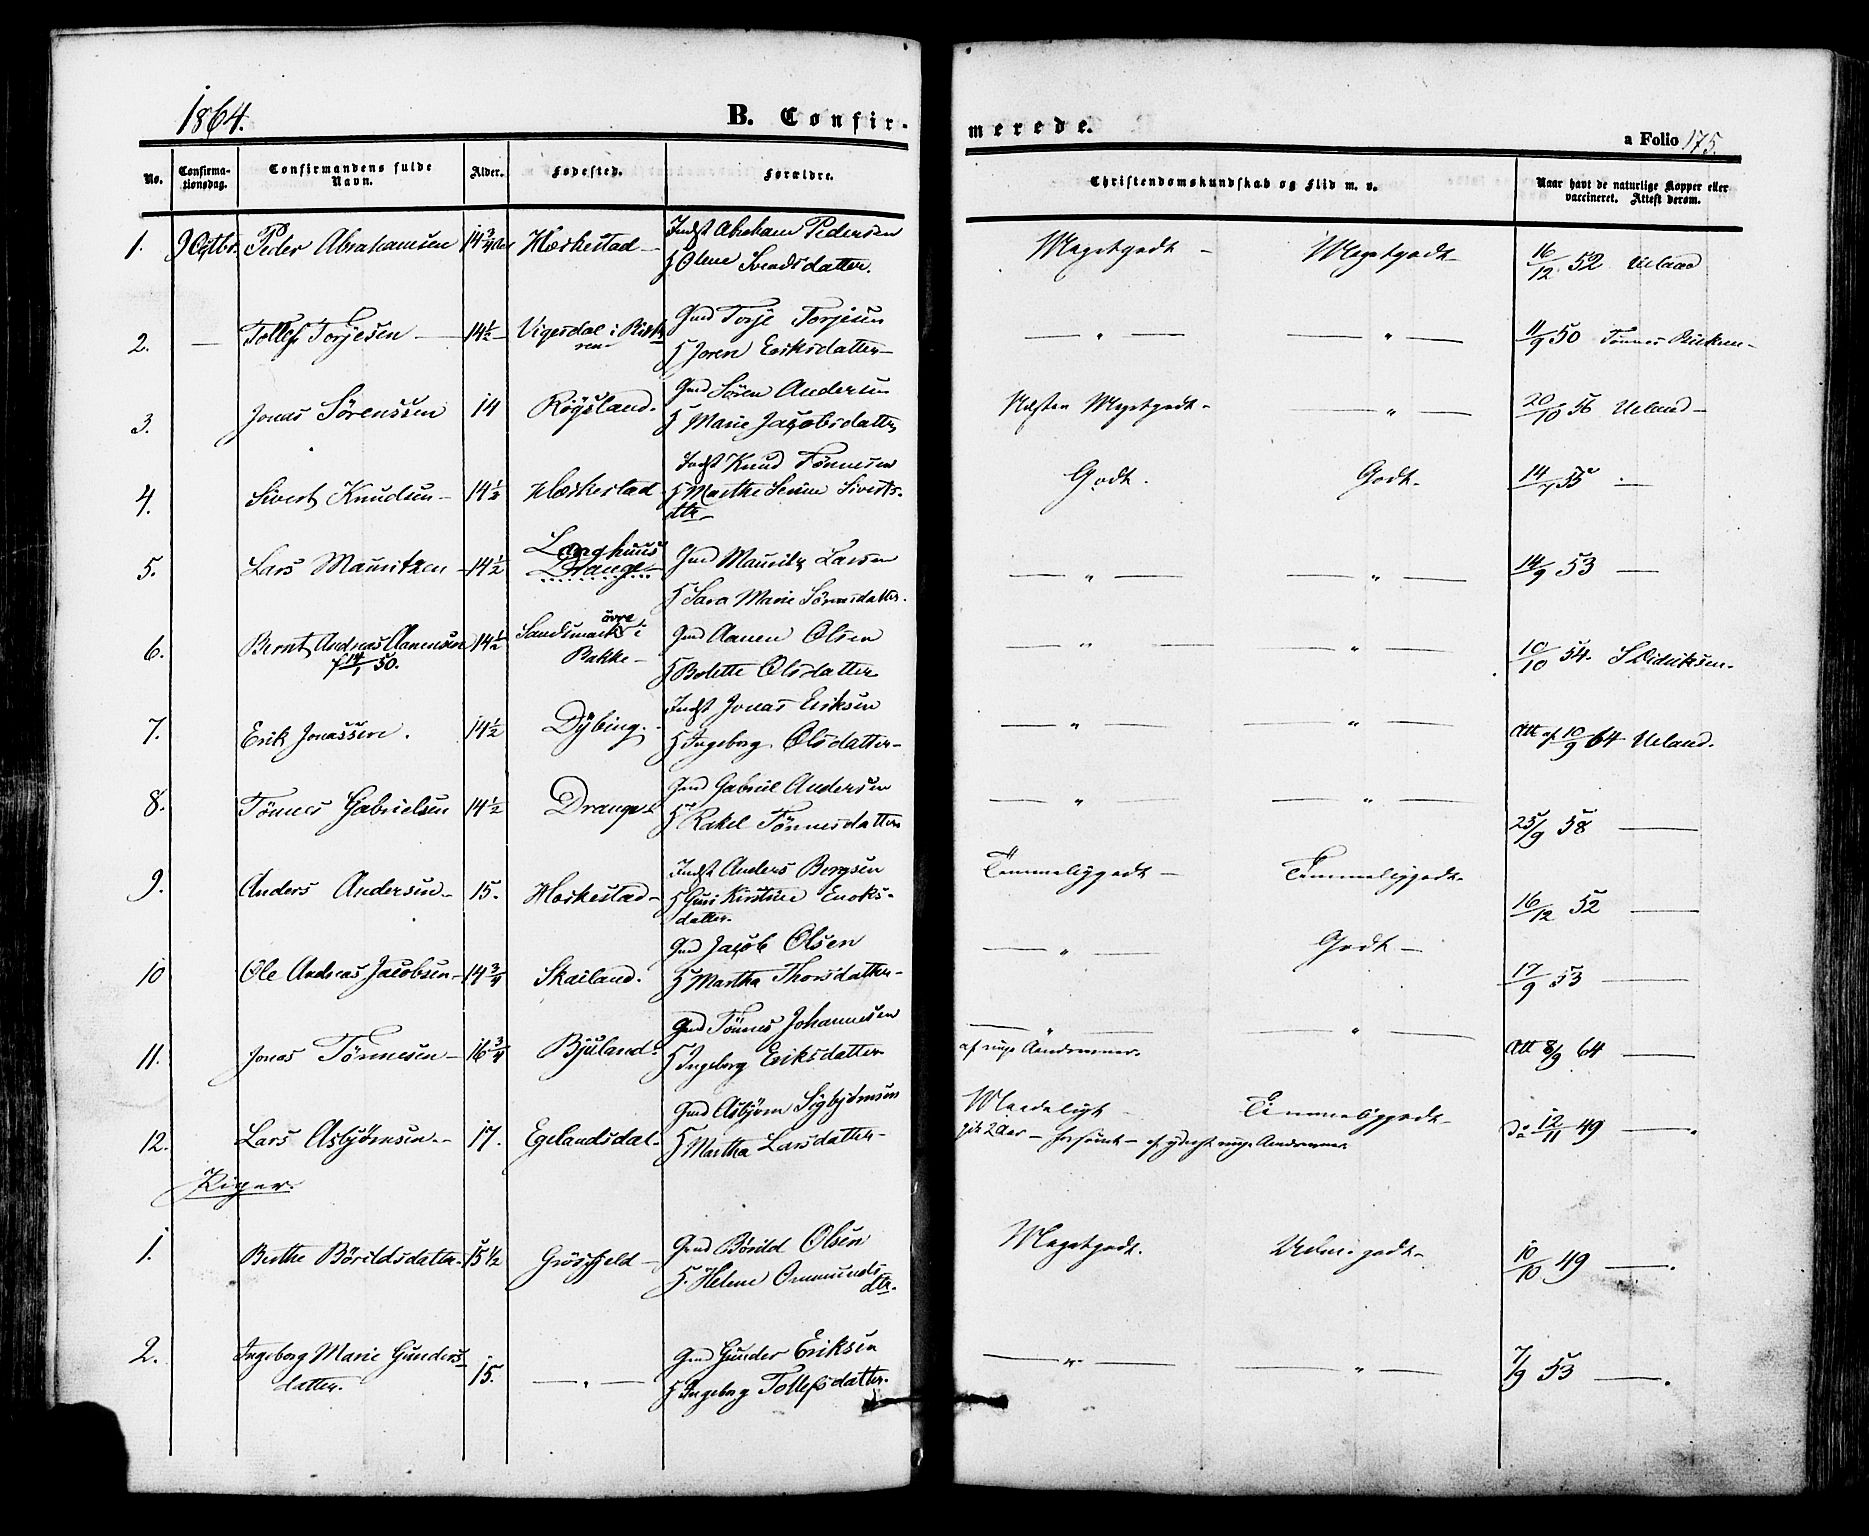 1864.
B. Confirmerede.
a Folio 175.
No. Confirmationsdag. Confirmandens fulde Navn. Alder. Fødested. Forældre. Christendomskundskab og Flid m. v. Naar havt de naturlige Kopper eller vaccineret. Attest derom.
1. 9 Octbr. Peder Abrahamsen 14 3/4 Heskestad - Indst Abraham Pedersen
H Olene Svendsdatter. Megetgodt - Megetgodt - 16/12 52 Ueland
2. — Tollef Torjesen — 14 1/2 Vigesdal i Gmd Torje Torjesen
H Joren Eriksdatter — — " — — " — 11/9 50 Tønnes
3. Jonas Sørenssen 14 Røysland. Gmd Søren Andersen
H Marie Jacobsdatter Næsten Megetgodt - — " — 20/10 56 Ueland -
4. Sivert Knudsen - 14 1/2 Heskestad Indst Knud Tønnesen
H Marthe Serine Siverts-
dtr - Godt. Godt. 14/ 55 —
5. Lars Mauritzen - 14 1/2 Langhuus
Drange Gmd Mauritz Larsen
H Sara Marie Sørensdatter. — " — — " — 14/9 53 —
6. Bernt Andreas Aanensen 14 1/2
f 14/ 50. Sandsmark øvre i
Bakke - Gmd Aanen Olsen
H Bolette Olsdatter — " — — " — 10/10 54. S Didriksen.
7. Erik Jonassen. 14 1/2 Dybing. Indst Jonas Eriksen
H Ingeborg Olsdatter - — " — — " — Att af 10/9 64 Ueland.
8. Tønnes Gabrielsen 14 1/2 Drange Gmd Gabriel Andersen
H Rakel Tønnesdatter — " — — " — 25/9 58 —
9. Anders Andersen - 15. Heskestad - Indst Anders Bergsen
H Guri Kirstine Enoks-
datter. Temmeliggodt - Temmeliggodt. 16/12 52 —
10 Ole Andreas Jacobsen - 14 3/4 Skailand. Gmd Jacob Olsen
H Martha Thorsdatter - — " — Godt - 17/9 53 —
11. Jonas Tønnesen - 16 3/4 Bjuland Gmd Tønnes Johannesen
H Ingeborg Eriksdatter — " —
af ringe Aandsevner. — " — Att 8/9 64 —
12. Lars Asbjørnsen - 17. Egelandsdal. Gmd Asbjørn Sigbjørnsen
H Martha Larsdatter - Maadeligt - Temmeliggodt -
gik 2 Aar - forsømt - af yderst ringe Aandsevner. do 12/11 49 —
Piger.
1. Berthe Børildsdatter. 15 1/2 Grøsfjeld - Gmd Børild Olsen
H. Helene Ommunds
dtr. Megetgodt. godt - 10/10 49 —
2. Ingeborg Marie Gunders
datter. 15. — " — Gmd Gunder Eriksen
H Ingeborg Tollefsdatter. — " — — " — 7/9 53 —